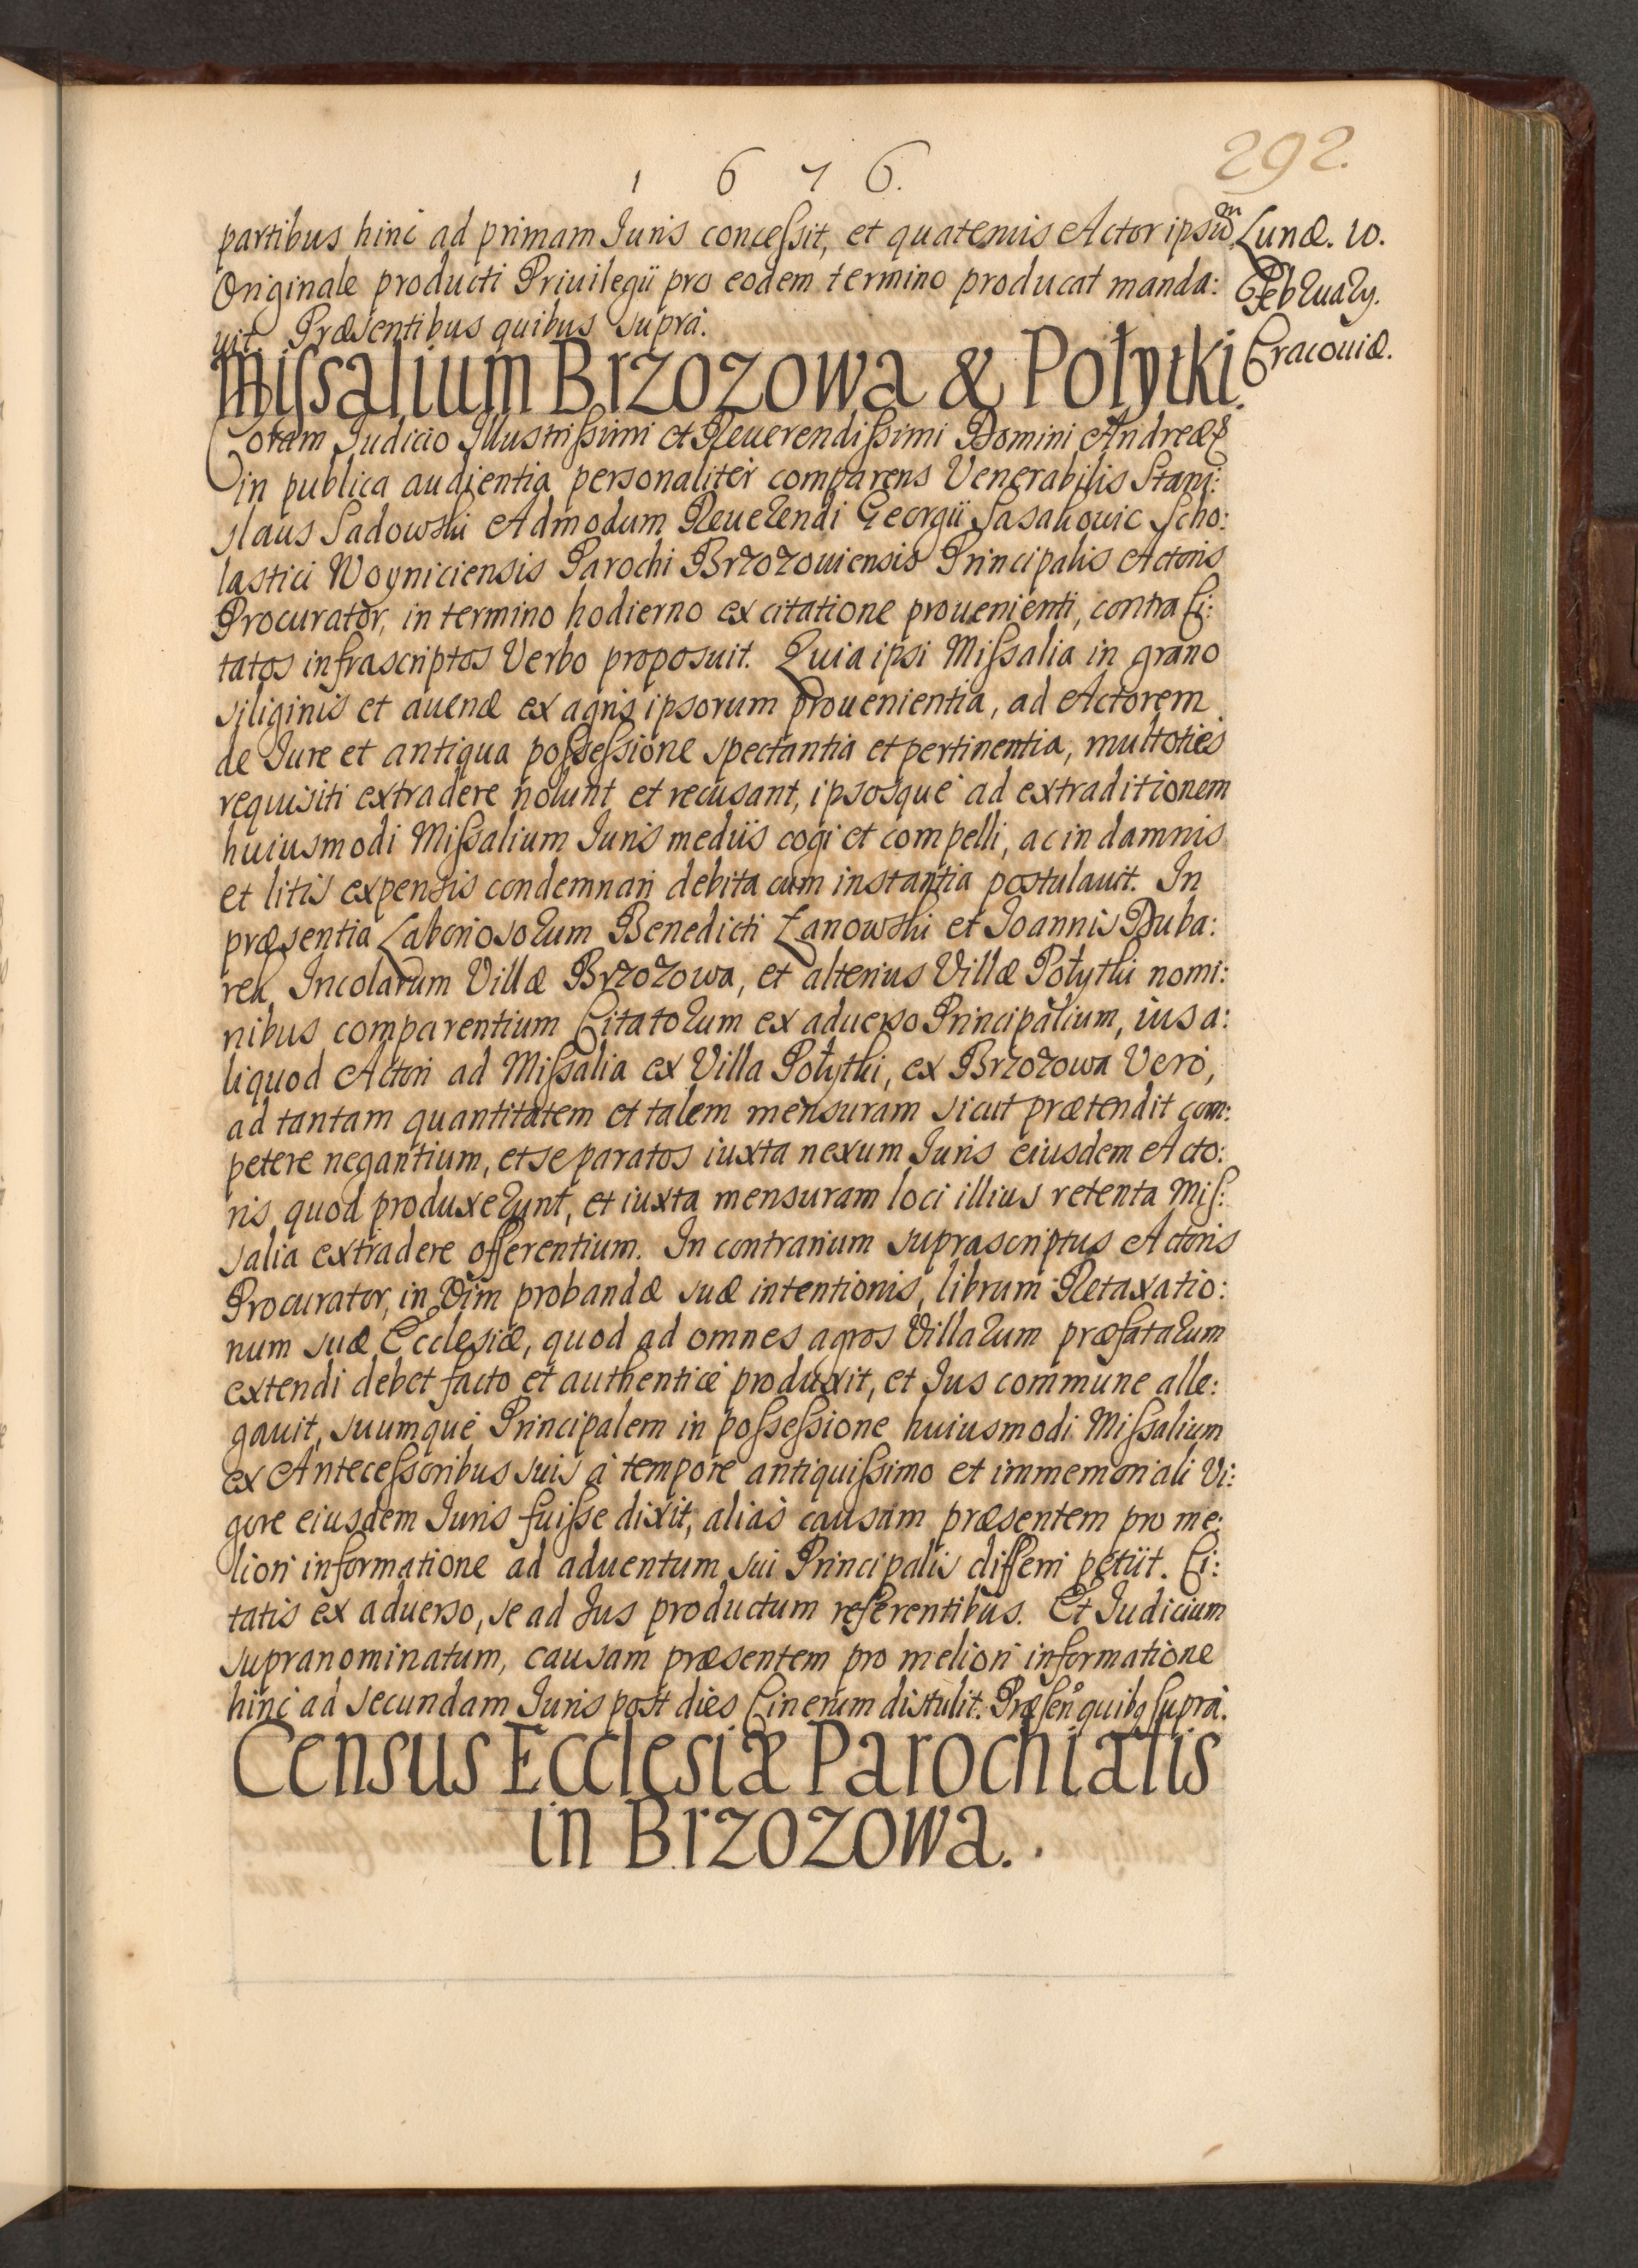 292.
1 6 7 6.
partibus hinc ad primam Iuris concessit, et quatenus Actor ipsum
Originale producti Priuilegii pro eodem termino producat manda:
uit. Præsentibus quibus suprà.
Lunæ. 10.
February.
Cracouiæ.
Missalium Brzozowa & Połytki.
Coram Iudicio Illustrissimi et Reuerendissimi Domini Andreæ &
in publica audientia personaliter comparens Venerabilis Stani:
slaus Sadowski Admodum Reuerendi Georgii Sasakouic Scho:
lastici Woyniciensis Parochi Brzozouiensis Principalis Actoris
Procurator, in termino hodierno ex citatione prouenienti, contra Ci:
tatos infrascriptos Verbo proposuit. Quia ipsi Missalia in grano
siliginis et auenæ ex agris ipsorum prouenientia, ad Actorem
de Iure et antiqua possessione spectantia et pertinentia, multoties
requisiti extradere nolunt et recusant, ipsosque ad extraditionem
huiusmodi Missalium Iuris mediis cogi et compelli, ac in damnis
et litis expensis condemnari debita cum instantia postulauit. In
præsentia Laboriosorum Benedicti Łanowski et Ioannis Duba:
rek Incolarum Villæ Brzozowa, et alterius Villæ Połytki nomi:
nibus comparentium Citatorum ex aduerso Principalium, ius a:
liquod Actori ad Missalia ex Villa Połytki, ex Brzozowa Verò,
ad tantam quantitatem et talem mensuram sicut prætendit com:
petere negantium, et se paratos iuxta nexum Iuris eiusdem Acto:
ris, quod produxerunt, et iuxta mensuram loci illius retenta Mis:
salia extradere offerentium. In contrarium suprascriptus Actoris
Procurator, in Vim probandæ suæ intentionis, librum Retaxatio:
num suæ Ecclesiæ, quod ad omnes agros Villarum præfatarum
extendi debet facto et authenticè produxit, et Ius commune alle:
gauit, suumque Principalem in possessione huiusmodi Missalium
ex Antecessoribus suis à tempore antiquissimo et immemoriali Vi:
gore eiusdem Iuris fuisse dixit, aliàs causam præsentem pro me:
liori informatione ad aduentum sui Principalis differri petiit. Ci:
tatis ex aduerso, se ad Ius productum referentibus. Et Iudicium
supranominatum, causam præsentem pro meliori informatione
hinc ad secundam Iuris post dies Cinerum distulit. Præsen quibq suprà.
Census Ecclesiæ Parochialis
in Brzozowa.